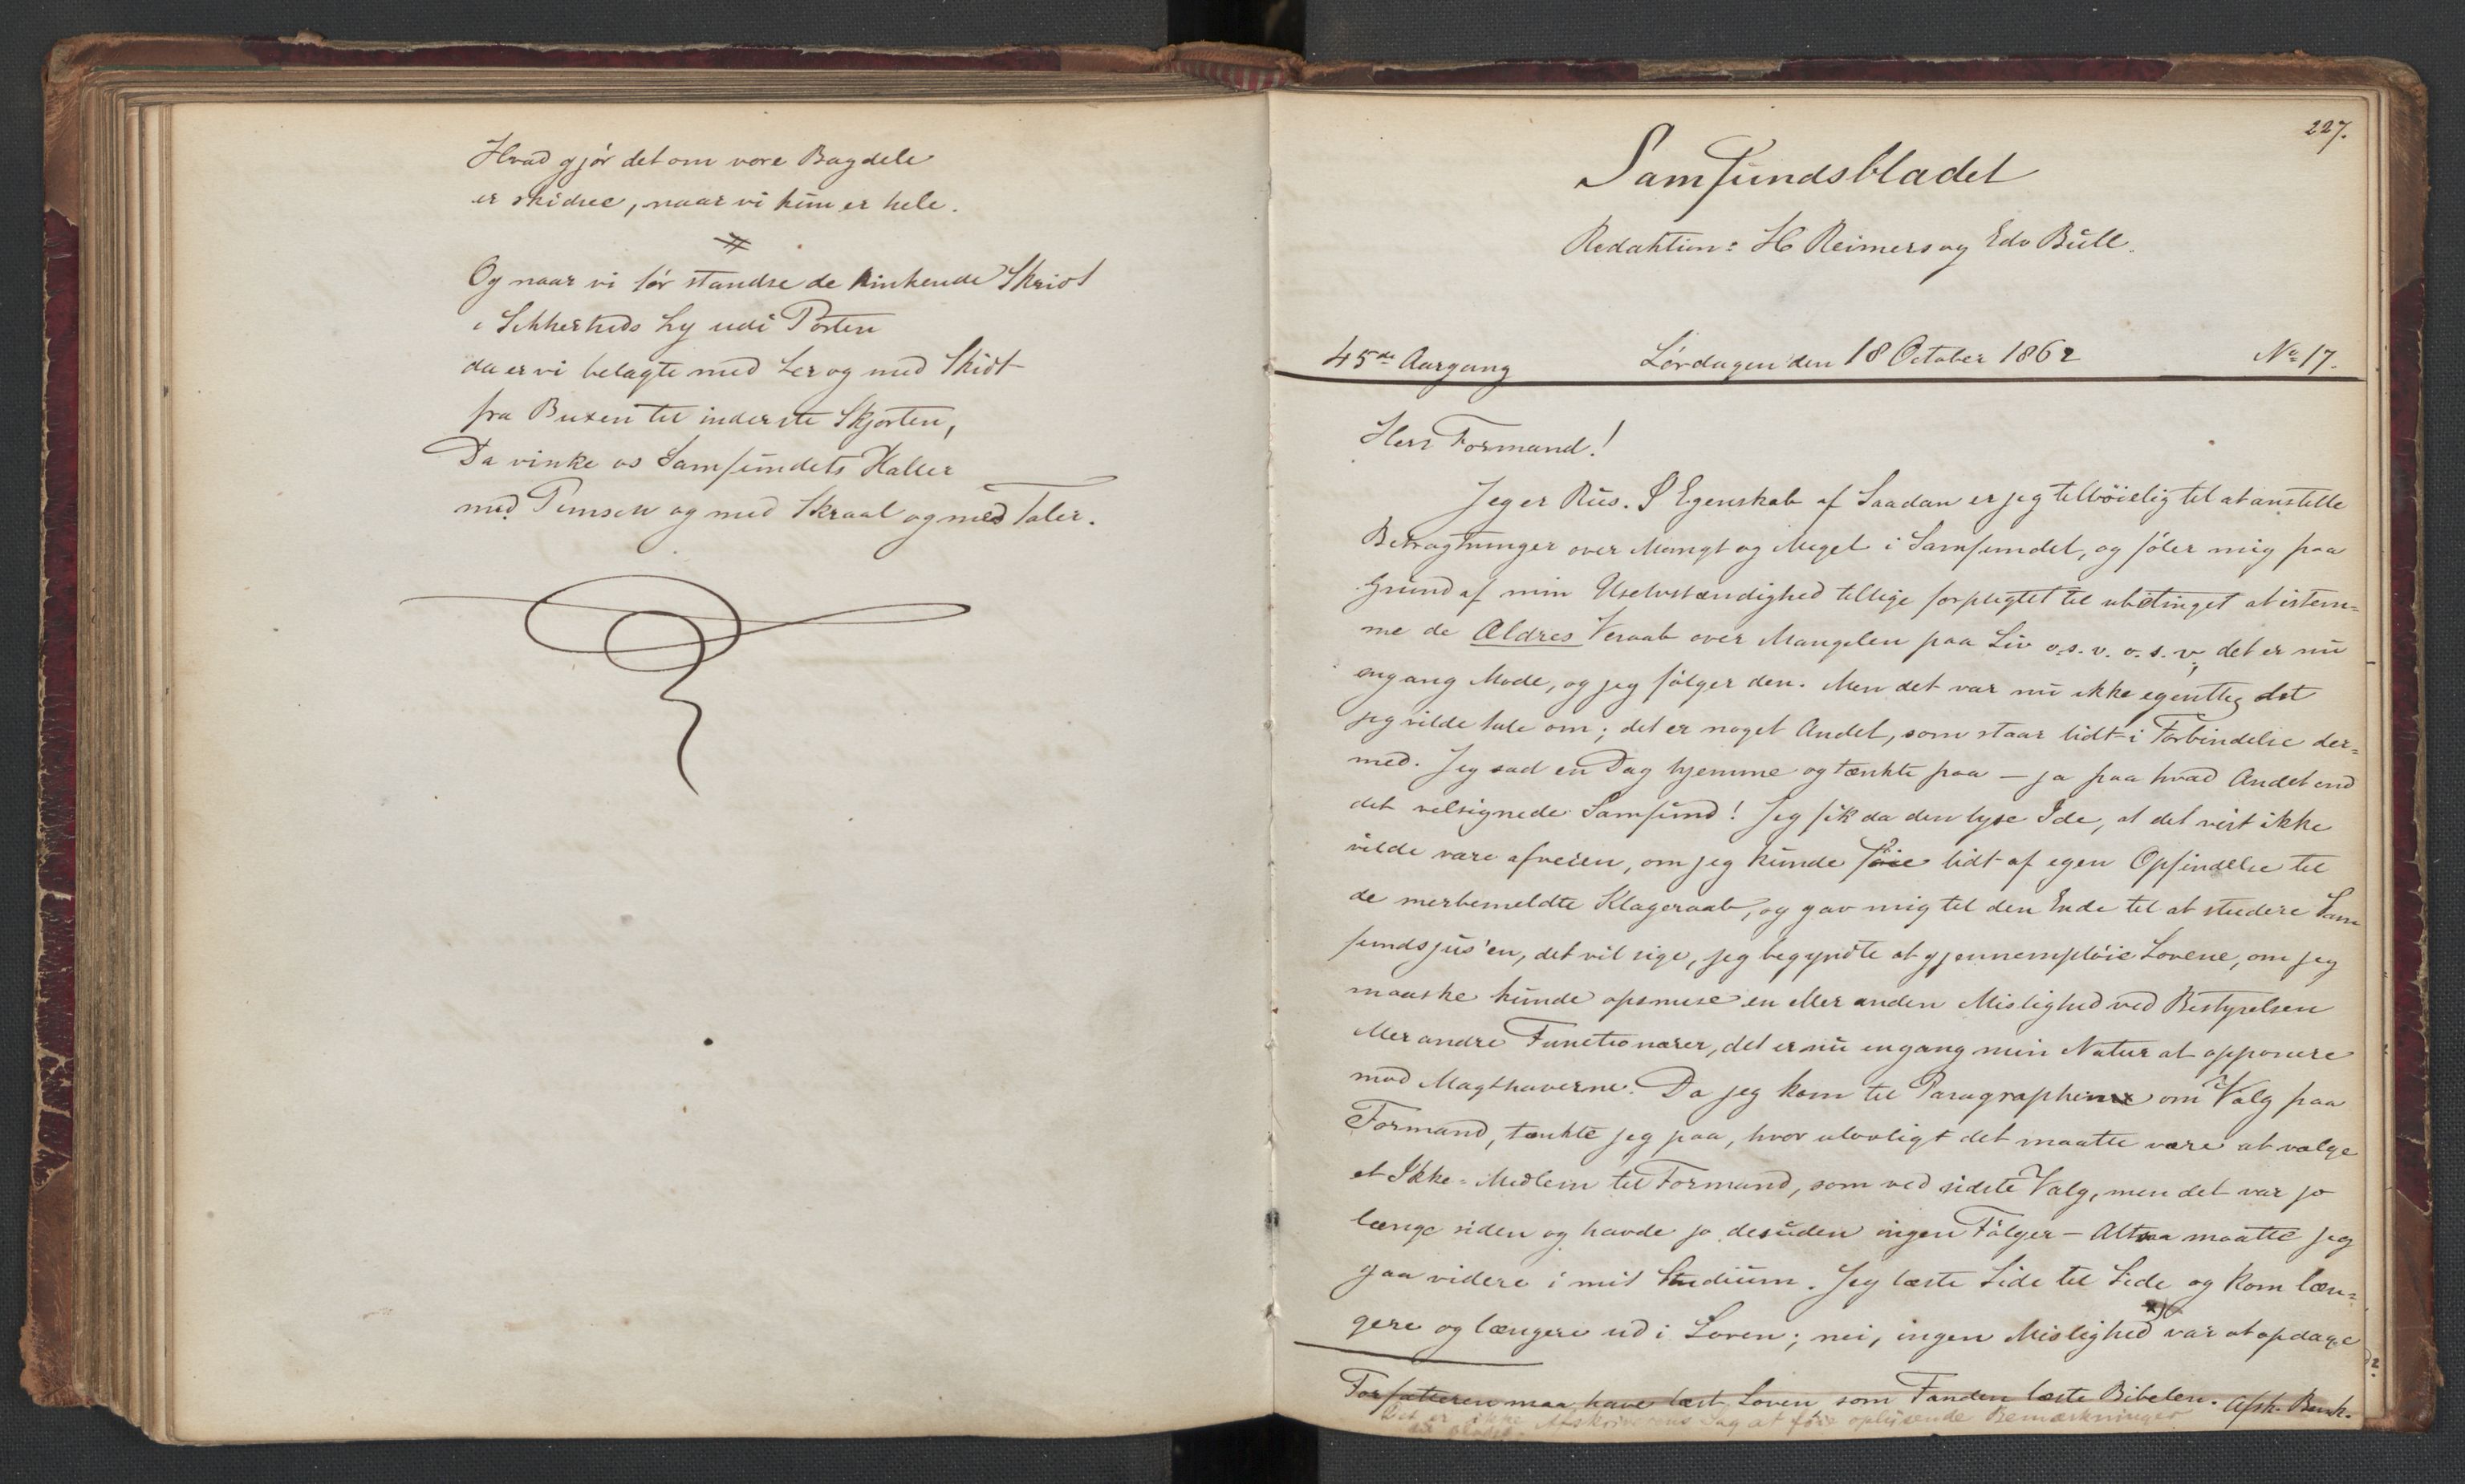 Hvad gjør det om vore Bagdele
er skidne, naar vi kun er hele.
Og naar vi tør standse de hinkende Skridt
i Sikkerheds Ly udi Porten
da er vi belagte med Ler og med Skidt
fra Buxen til inderste Skjorten,
Da vinke os Samfundets Haller
med Punsch og med Skraal og med Taler.
227.
Samfundsbladet
Redaktion: H Reimers og Edv Bull.
45de Aargang Lørdagen den 18 October 1862 No 17.
Herr Formand!
Jeg er Rus. I Egenskab af Saadan er jeg tilbøielig til at anstille
Betragtninger over Mangt og Meget i Samfundet, og føler mig paa
Grund af min Uselvstændighed tillige forpligtet til ubetinget at istem=
me de Ældres Veraab over Mangelen paa Liv o.s.v. o.s.v., det er nu
engang Mode, og jeg følger den. Men det var nu ikke egentlig det
jeg vilde tale om; det er noget Andet, som staar lidt i Forbindelse der=
med. Jeg sad en Dag hjemme og tænkte paa – ja paa hvad Andet end
det velsignede Samfund! Jeg fik da den lyse Ide, at det vist ikke
vilde være afveien, om jeg kunde føie lidt af egen Opfindelse til
de merbemeldte Klageraab, og gav mig til den Ende til at studere Sam
fundsjus'en, det vil sige, jeg begyndte at gjennempløie Lovene, om jeg
maaske kunde opsnuse en eller anden Mislighed ved Bestyrelsen
eller andre Functionærer, det er nu engang min Natur at opponere
mod Magthaverne. Da jeg kom til Paragrapherne om Valg paa
Formand, tænkte jeg paa, hvor ulovligt det maatte være at vælge
et Ikke-Medlem til Formand, som ved sidste Valg, men det var jo
længe siden og havde jo desuden ingen Følger – Altsaa maatte jeg
gaa videre i mit Studium. Jeg læste Side til Side og kom læn=
gere og længere ud i Loven; nei, ingen Mislighed var at opdage
Forfatteren maa have læst Loven som Fanden læste Bibelen. Afsk. Bemk.
Det er ikke Afskriverens Sag at føie oplysende Bemærkninger